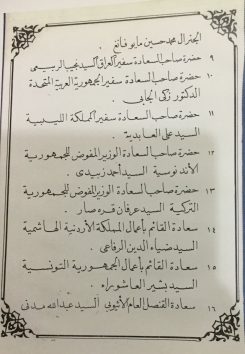 الجنرال محمد حسين مابو فانغ .
٩ حضرة صاحب السعادة سفير العراق السيد نجيب الراوي
١٠ حضرة صاحب السعادة سفير الجمهورية العربية المتحدة
الدكتور زكي الجابي .
١١ حضرة صاحب السعادة سفير المملكة الليبية
السيد علي العابدية .
١٢ حضرة صاحب السعادة الوزير المفوض للجمهورية
الأندنوسية السيد أحمد زبيدي .
١٣ حضرة صاحب السعادة الوزير المفوض للجمهورية
التركية السيد عرفان قره صار .
١٤ سعادة القائم بأعمال المملكة الأردنية الهاشمية
السيد ضياء الدين الرفاعي .
١٥ سعادة القائم بأعمال الجمهورية التونسية
السيد بشير العاشوراء .
١٦ سعادة القنصل العام لأثيوبي السيد عبد الله مدني